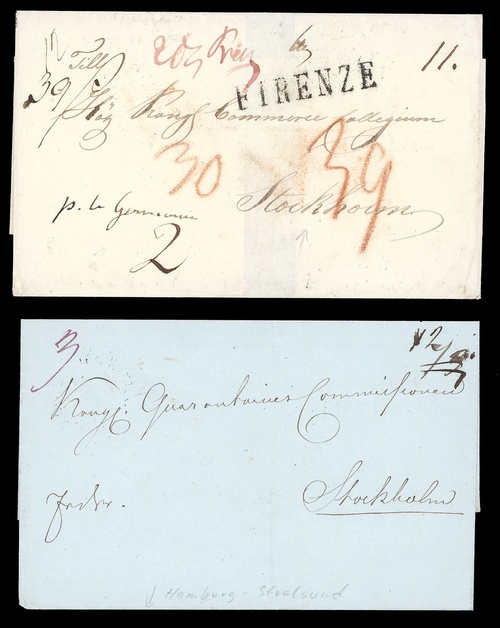 12
Till
39
11.
FIRENZE
Kongl Commerce Collegium
30
39
Stockholm
p. la Germania
2
3
12
Kongl. Quarantaines Commissionen
Stockholm
Hamburg - Stralsund